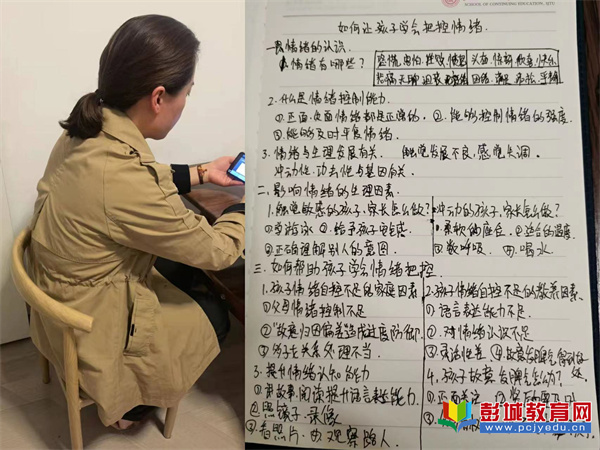 SCHOOL OF CONTINUING EDUCATION,
如何让孩子学会把控情绪.
一.情绪的认识.
1.情绪有哪些?
2.什么是情绪控制能力
①正面、负面情绪都是正常的, ②.能够控制情绪的强度.
③能够及时平复情绪.
3.情绪与生理发展有关. 触觉发展不良,感觉失调.
冲动性.攻击性与基因有关.
二.影响情绪的生理因素.
1.触觉敏感的孩子,家长怎么做?
冲动的孩子,家长怎么做?
①学游泳 ②给予孩子安全感
①柔软的座位 ②适合的温度
③正确理解别人的意图.
③数呼吸. ④.喝水.
三.如何帮助孩子学会情绪把控.
1.孩子情绪自控不足的家庭因素
2.孩子情绪自控不足的教养因素.
①父母情绪控制不足
①语言表达能力不足.
②敌意归因偏差造成过度防御.
②.对情绪认识不足
③分子关系处理不当.
③灵活性差
3.提升情绪认知能力
4.孩子故意发脾气怎么办?
①讲故事.阅读提升语言表达能力.
②照镜子.录像
③看照片. ④观察路人.
彭城教育网
www.pcjyedu.cn